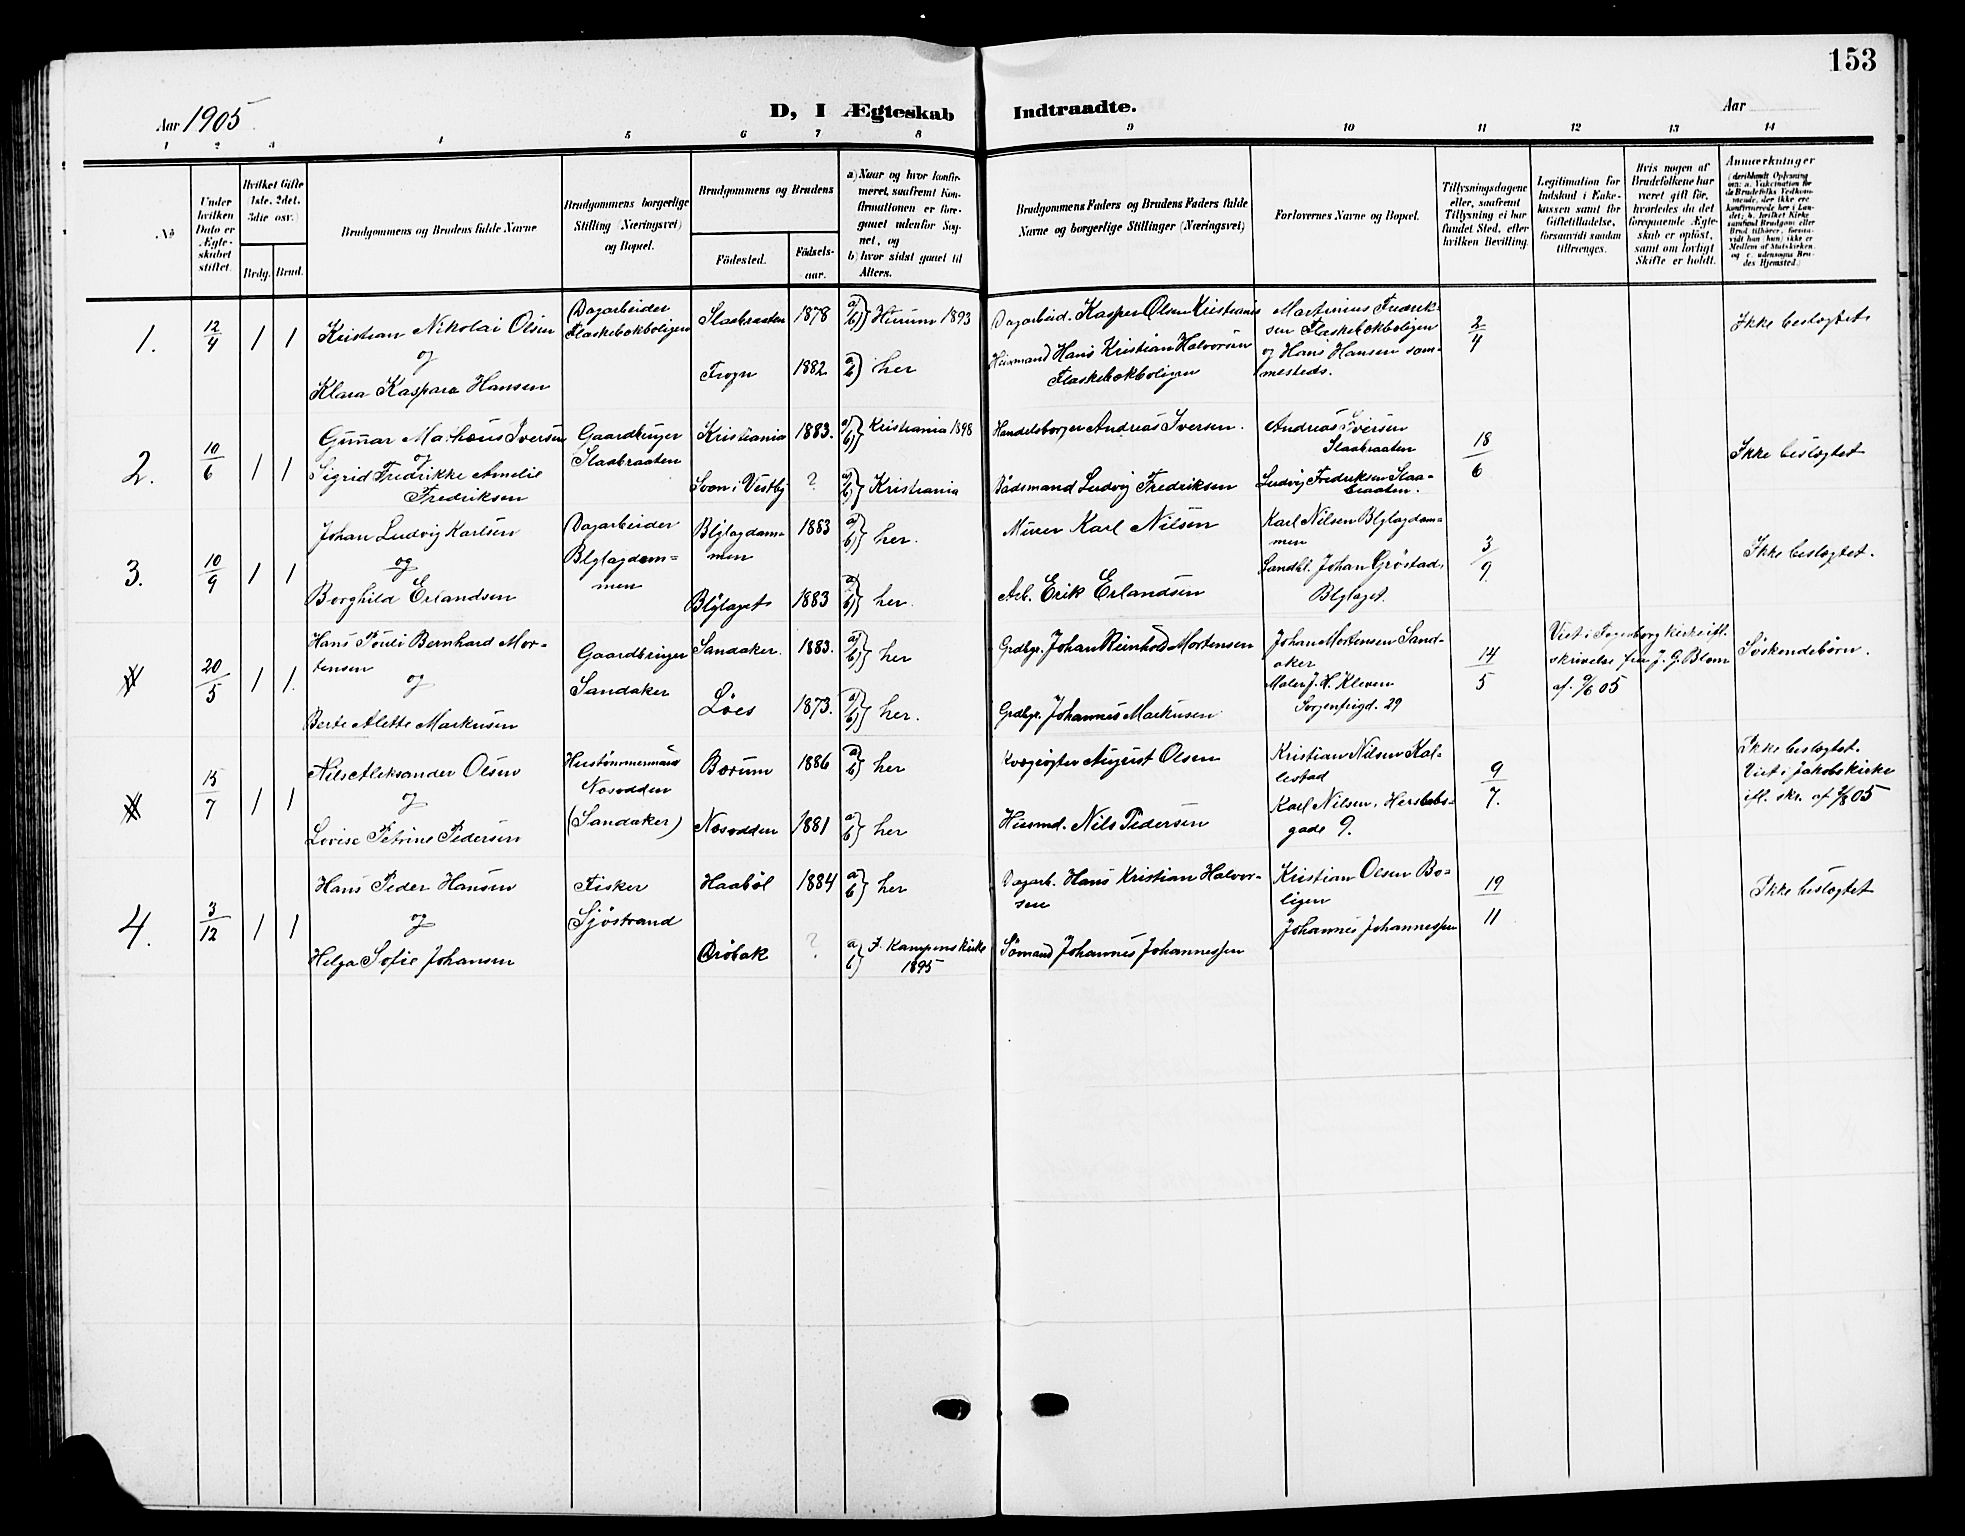 153
Aar 1905
D, I Ægteskab Indtraadte.
Aar
1 2 3 4 5 6 7 8 9 10 11 12 13 14
No
Under hvilken Dato er Ægteskabet stiftet.
Hvilket Gifte 1ste, 2det, 3die osv.)
Brdg. Brud.
Brudgommens og Brudens fulde Navne
Brudgommens borgerlige Stilling (Næringsvei) og Bopæl.
Brudgommens og Brudens
Födested.
Födselsaar.
a) Naar og hvor konfirmeret, saafremt Konfirmationen er foregaaet udenfor Sognet, og
b) hvor sidst gaaet til Alters.
Brudgommens Faders og Brudens Faders fulde Navne og borgerlige Stillinger (Næringsvei)
Forlovernes Navne og Bopæl.
Tillysningsdagene eller, saafremt Tillysning ei har fundet Sted, efter hvilken Bevilling.
Legitimation for Indskud i Enkekassen samt for Giftetilladelse, forsaavidt saadan tiltrænges.
Hvis nogen af Brudefolkene har været gift för, hvorledes da det foregaaende Ægteskab er oplöst, samt om lovligt Skifte er holdt.
Anmærkninger
1.
12/4
1 1
Kristian Nikolai Olsen
og
Klara Kaspara Hansen
Dagarbeider
Flaskebækboligen
Slaabraaten 1878 a) b) Hurum 1893
Frogn 1882 a) b) her
Dagarbeid. Kasper Olsen Kristiania
Husmand Hans Kristian Halvorsen
Flaskebækboligen
Martinius Fredrik-
sen Flaskebækboligen
og Hans Hansen sam-
mesteds.
2/4
Ikke beslægtet
2.
10/6
1 1
Gunnar Mathæus Iversen
og
Sigrid Fredrikke Amelie
Fredriksen
Gaardbruger
Slaabraaten
Kristiania 1883. a) b) Kristiania 1898
Soon i Vestby ? a) b) Kristiania
Handelsborger Andreas Iversen.
Bådsmand Ludvig Fredriksen
Andreas Iversen
Slaabraaten
Ludvig Fredriksen Slaa-
braaten.
18/6
Ikke beslægtet
3.
10/9
1 1
Johan Ludvig Karlsen
og
Borghild Erlandsen
Dagarbeider
Blylagdam-
men
Blylagdam-
men
1883 a) b) her.
Blylaget 1883 a) b) her.
Murer Karl Nilsen
Arb. Erik Erlandsen
Karl Nilsen Blylagdam-
men
Landhl. Johan Gröstad,
Blylaget.
3/9.
Ikke beslægtet.
20/5
1 1.
Hans Pouli Bernhard Mor-
tensen
og
Berte Alette Markusen
Gaardbruger
Sandaker
Sandaker. 1883. a) b) her
Löes 1873. a) b) her.
Grdbgr. Johan Reinhold Mortensen
Grdbgr. Johannes Markusen
Johan Mortensen Sand-
aker
Maler J. H. Kleven
Sorgenfrigd. 29
14/5
Viet i Fagerborg kirke ifl.
skrivelse fra J. G. Blom
af 9/6 05
Söskendebörn.
15/7
1 1
Nils Aleksander Olsen
og
Lovise Petrine Pedersen
Hustömmermand
Nesodden
(Sandaker)
Bærum 1886 a) b) her
Nesodden 1881 a) b) her
Kvægrögter August Olsen
Husmd. Nils Pedersen
Kristian Nilsen Kal-
lestad
Karl Nilsen, Herslebs-
gade 9.
9/7.
Ikke beslægtet.
Viet i Jakobs kirke
ifl. skr. af 7/8 05
4.
3/12
1 1
Hans Peder Hansen
og
Helga Sofie Johansen
Fisker
Sjöstrand
Haaböl 1884 a) b) her
Dröbak ? a) b) I Kampens kirke
1895
Dagarb. Hans Kristian Halvor-
sen
Sömand Johannes Johannessen
Kristian Olsen Bo-
ligen
Johannes Johannessen
19/11
Ikke beslægtet